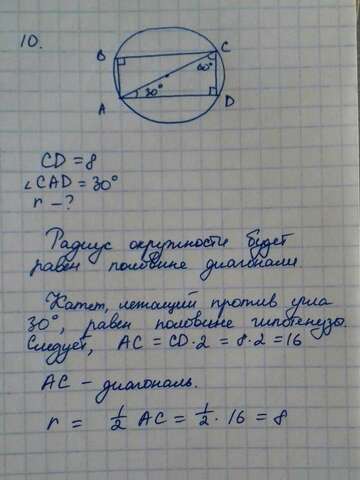 10.
B C
60°
30°
A D
CD = 8
∠CAD = 30°
r - ?
Радиус окружности будет
равен половине диагонали.
Катет, лежащий против угла
30°, равен половине гипотенузы.
Следует, AC = CD · 2 = 8 · 2 = 16
AC - диагональ.
r = 1/2 AC = 1/2 · 16 = 8